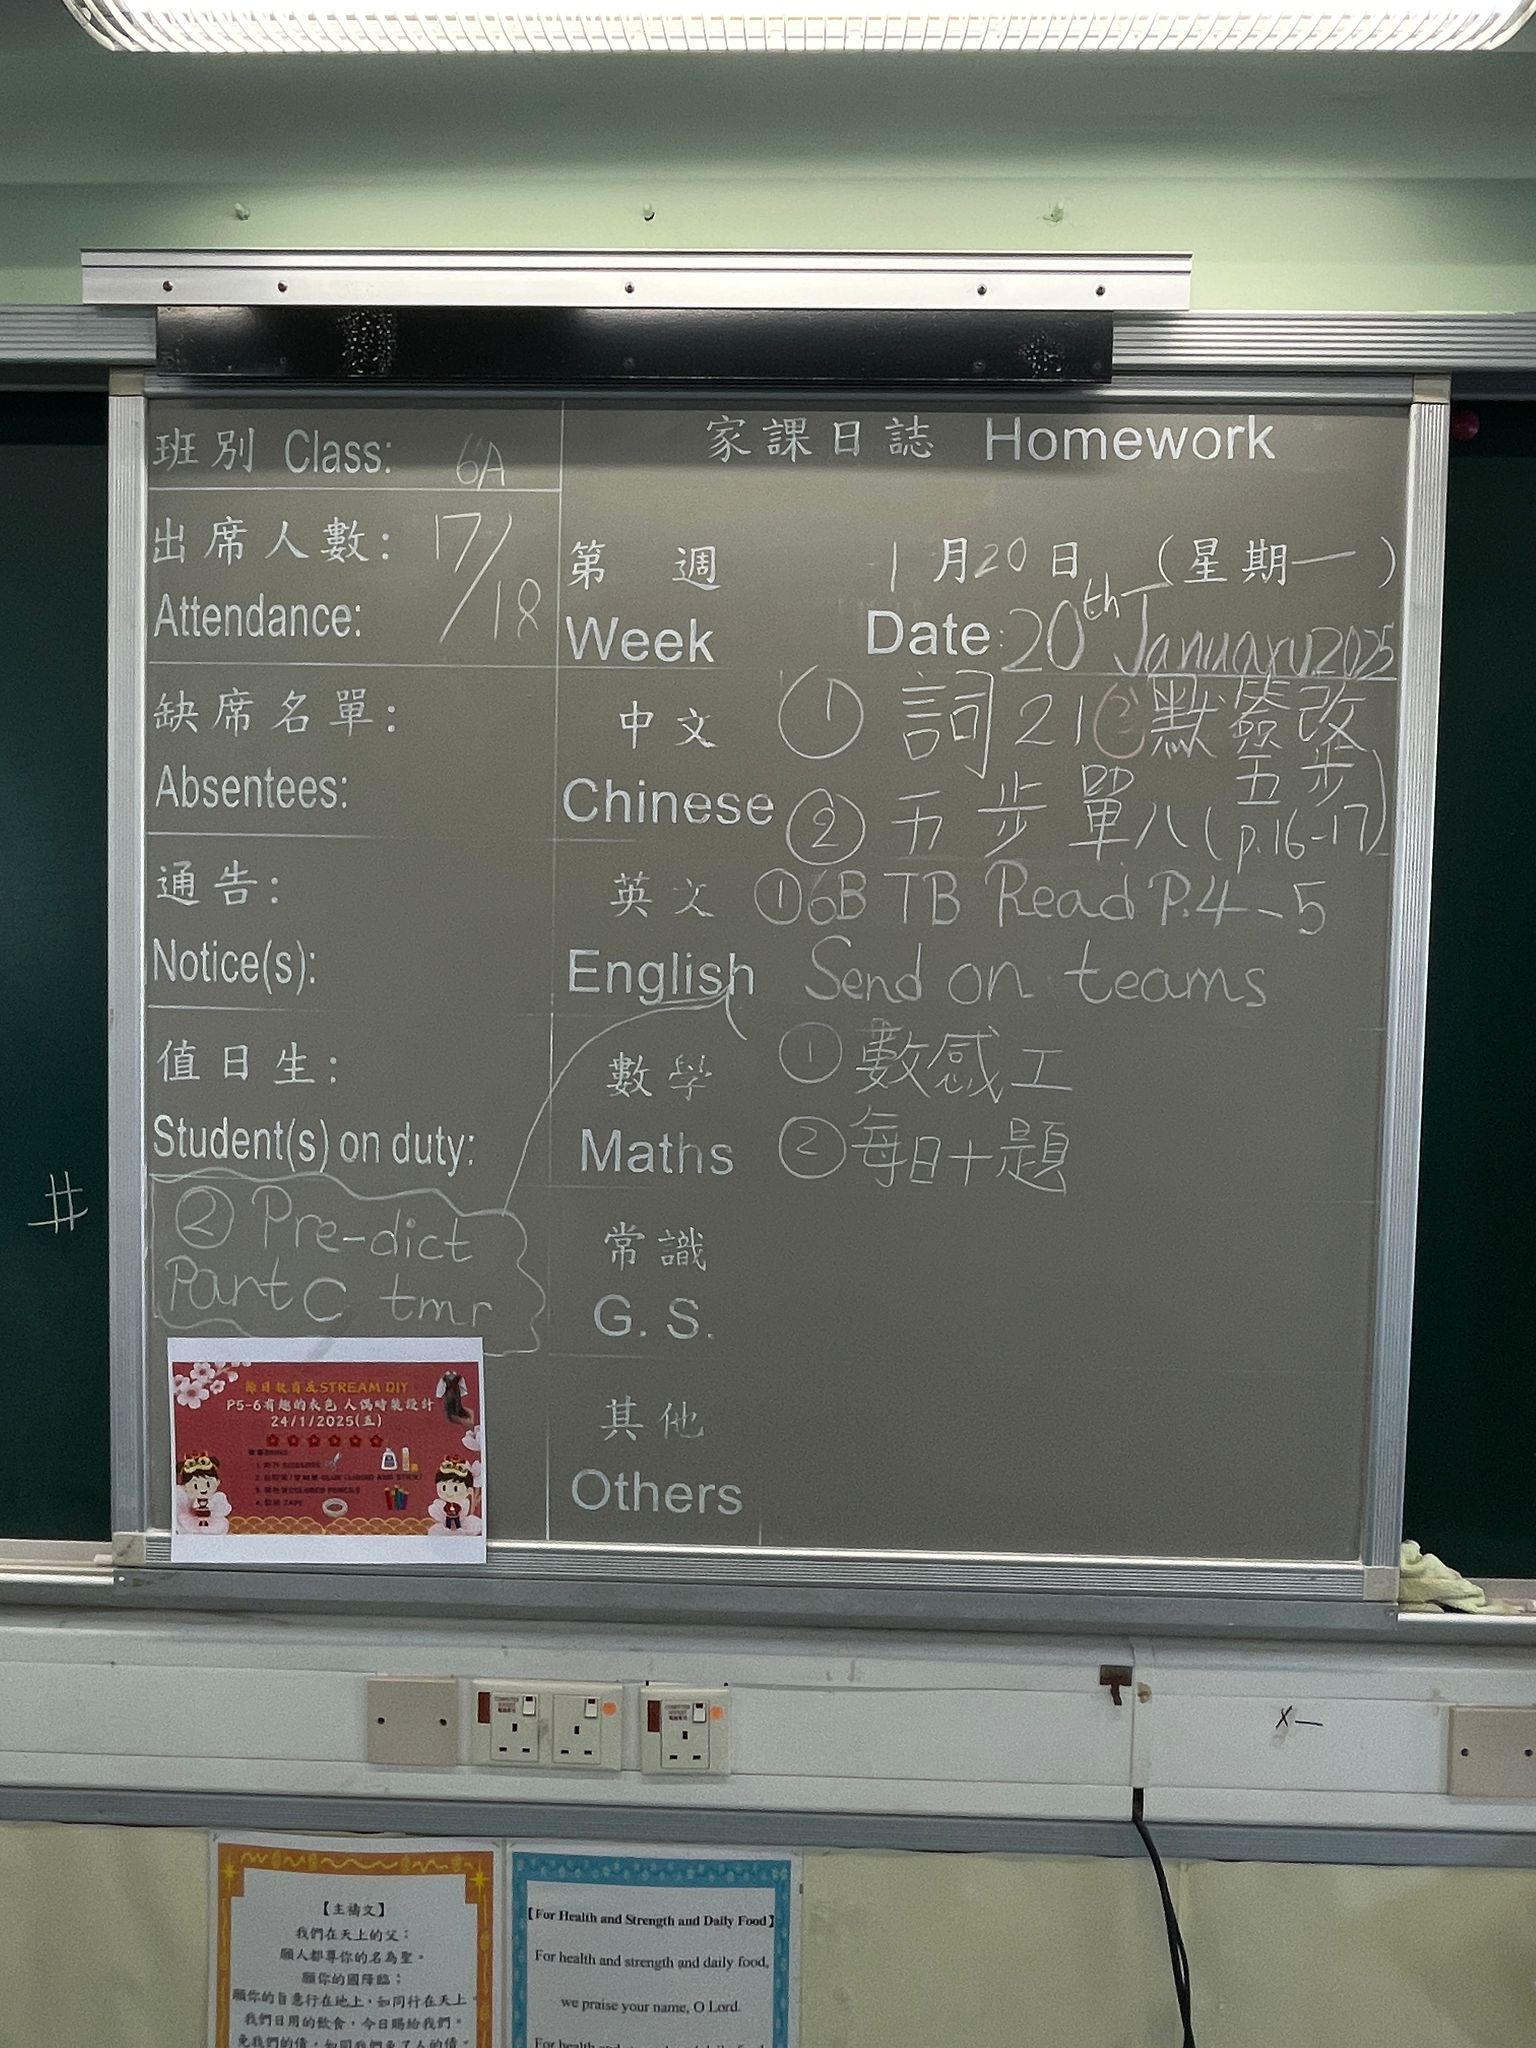 班別 Class: 6A
出席人數: 17/18
Attendance:
缺席名單:
Absentees:
通告:
Notice(s):
值日生:
Student(s) on duty:
② Pre-dict
Part C tmr
家課日誌 Homework
第 週 1月20日 (星期一)
Week Date: 20th January 2025
中文 ① 詞21 ③ 默簽改
Chinese ② 五步單八 (五步 p.16-17)
英文 ① 6B TB Read P.4-5
English Send on teams
數學 ① 數感工
Maths ② 每日十題
常識
G. S.
其他
Others
#
節日教育及STREAM DIY
P5-6有趣的衣色 人偶時裝設計
24/1/2025(五)
COLORED PENCILS
TAPE
X—
【主禱文】
我們在天上的父:
願人都尊你的名為聖。
願你的國降臨;
願你的旨意行在地上,如同行在天上。
我們日用的飲食,今日賜給我們。
免我們的債,如同我們免了人的債。
【For Health and Strength and Daily Food】
For health and strength and daily food,
we praise your name, O Lord.
For health and strength and daily food,